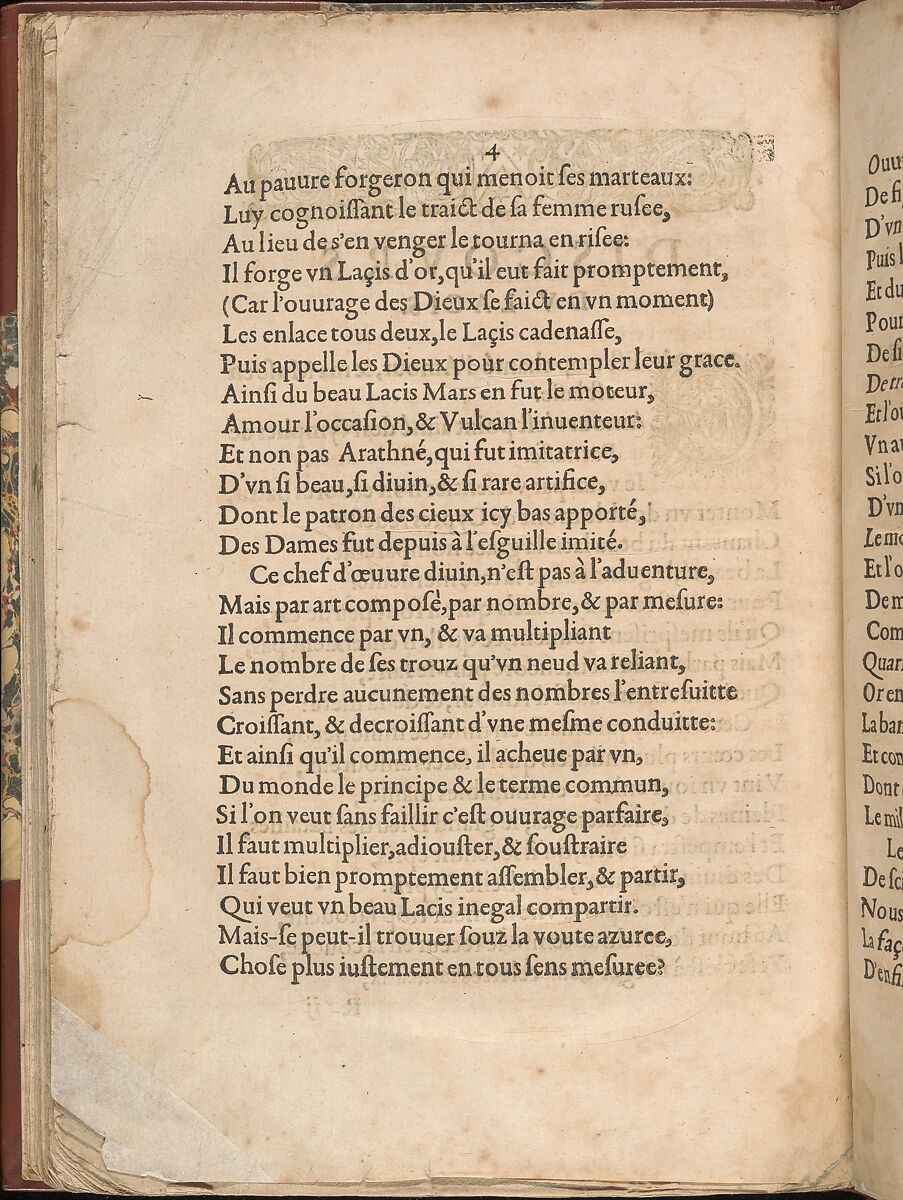 4
Au pauure forgeron qui menoit ſes marteaux:
Luy cognoiſſant le traict de ſa femme ruſee,
Au lieu de s'en venger le tourna en riſee:
Il forge vn Laçis d'or, qu'il eut fait promptement,
(Car l'ouurage des Dieux ſe faict en vn moment)
Les enlace tous deux, le Laçis cadenaſſe,
Puis appelle les Dieux pour contempler leur grace.
Ainſi du beau Lacis Mars en fut le moteur,
Amour l'occaſion, & Vulcan l'inuenteur:
Et non pas Arathné, qui fut imitatrice,
D'vn ſi beau, ſi diuin, & ſi rare artifice,
Dont le patron des cieux icy bas apporté,
Des Dames fut depuis à l'eſguille imité.
Ce chef d'œuure diuin, n'eſt pas à l'aduenture,
Mais par art compoſè, par nombre, & par meſure:
Il commence par vn, & va multipliant
Le nombre de ſes trouz qu'vn neud va reliant,
Sans perdre aucunement des nombres l'entreſuitte
Croiſſant, & decroiſſant d'vne meſme conduitte:
Et ainſi qu'il commence, il acheue par vn,
Du monde le principe & le terme commun,
Si l'on veut ſans faillir c'eſt ouurage parfaire,
Il faut multiplier, adiouſter, & ſouſtraire
Il faut bien promptement aſſembler, & partir,
Qui veut vn beau Lacis inegal compartir.
Mais-ſe peut-il trouuer ſouz la voute azuree,
Choſe plus iuſtement en tous ſens meſuree?
D'vn
Puis
Et du
Pour
De ſi
Et l'o
Vn a
Si l'o
D'vn
Et l'o
De m
Com
Quar
Or en
La bar
Et con
Dont
Le mil
Le
De ſci
Nous
la faç
D'enfi